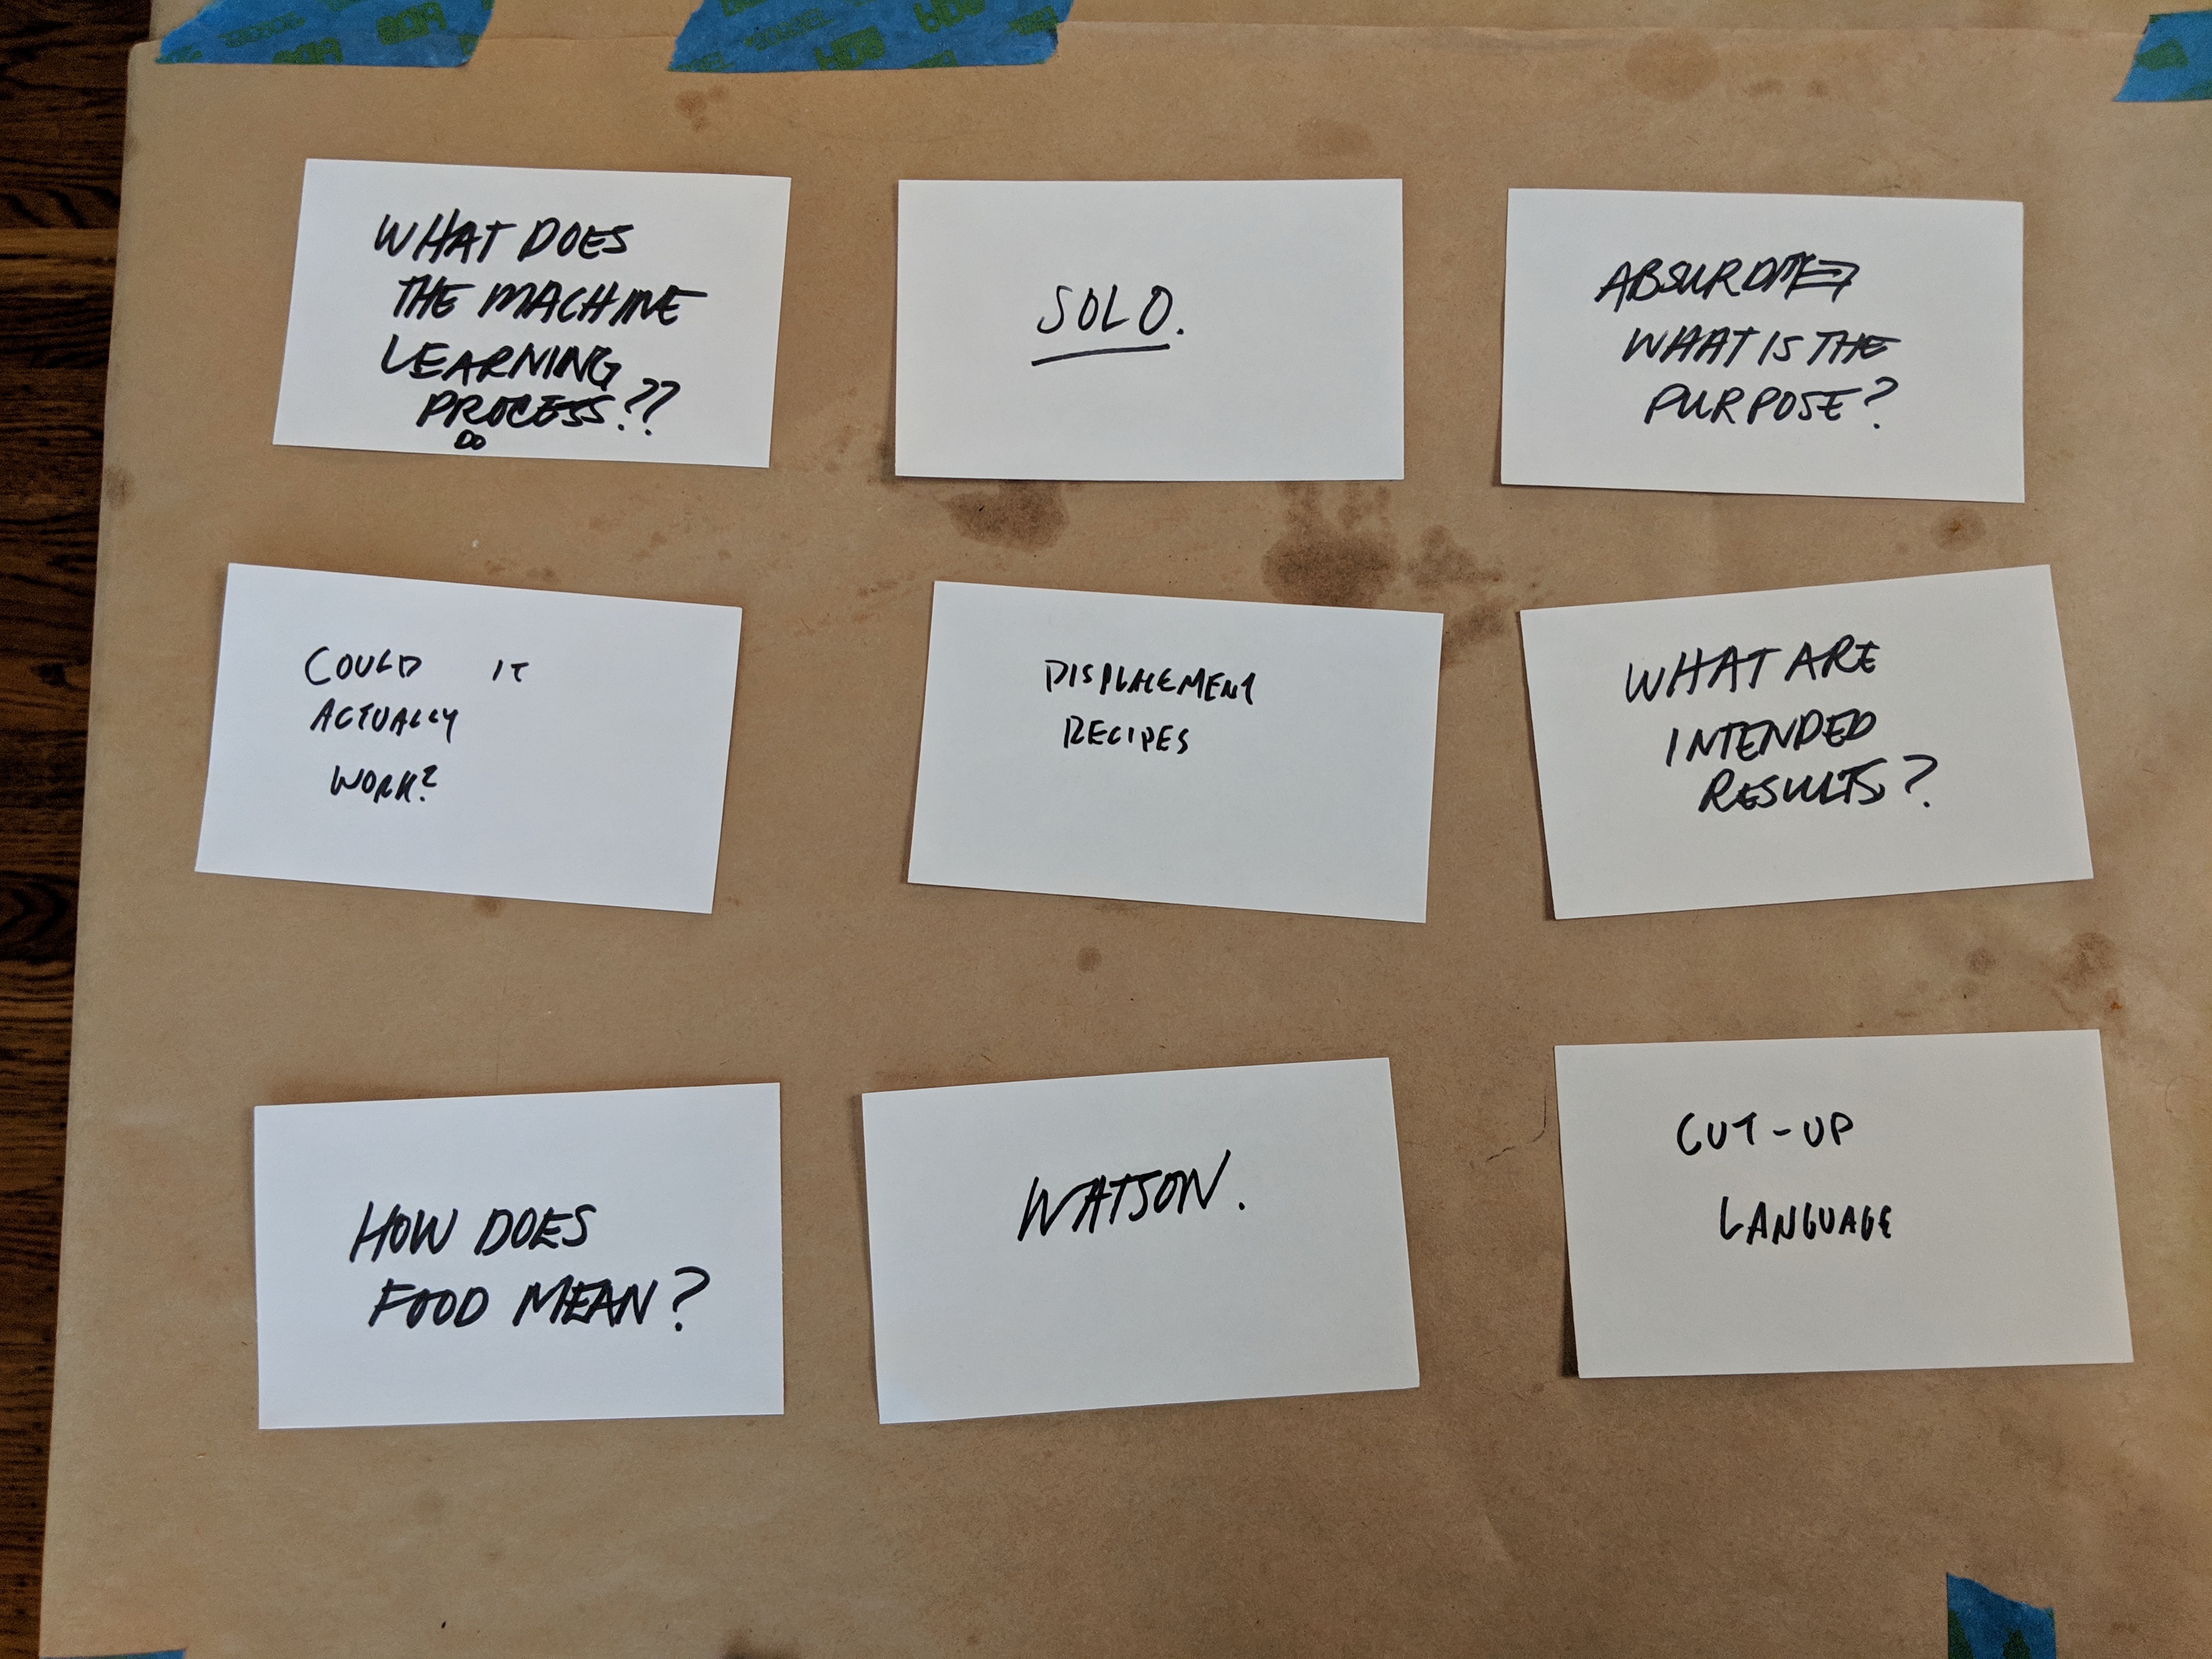 WHAT DOES
THE MACHINE
LEARNING
PROCESS??
DO
SOLO.
WHAT IS THE
PURPOSE?
COULD IT
ACTUALLY
WORK?
DISPLACEMENT
RECIPES
WHAT ARE
INTENDED
RESULTS?
HOW DOES
FOOD MEAN?
WATSON.
CUT-UP
LANGUAGE